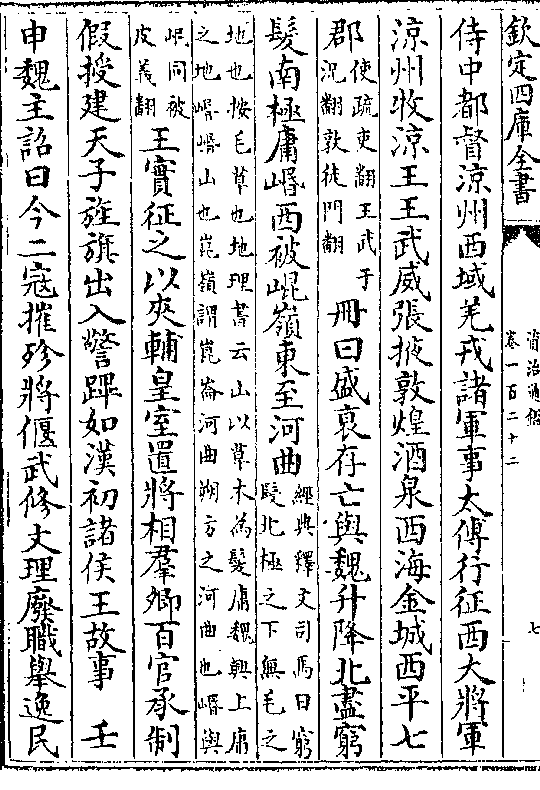 欽定四庫全書
資治通鑑
卷一百二十二
七
侍中都督涼州西域羌戎諸軍事太傅行征西大將軍
涼州牧涼王王武威張掖敦煌酒泉西海金城西平七
郡使疏吏翻王武于
况翻敦徒門翻
冊曰盛衰存亡與魏升降北盡窮
髮南極庸㟭西被崐嶺東至河曲
經典釋文司馬曰窮
髮北極之下無毛之
地也按毛草也地理書云山以草木為髮庸魏興上庸
之地㟭㟭山也崑嶺謂崑崙河曲朔方之河曲也㟭與
岷同被
皮義翻
王實征之以夾輔皇室置將相羣卿百官承制
假授建天子旌旗出入警蹕如漢初諸侯王故事 壬
申魏主詔曰今二寇摧殄將偃武修文理廢職舉逸民